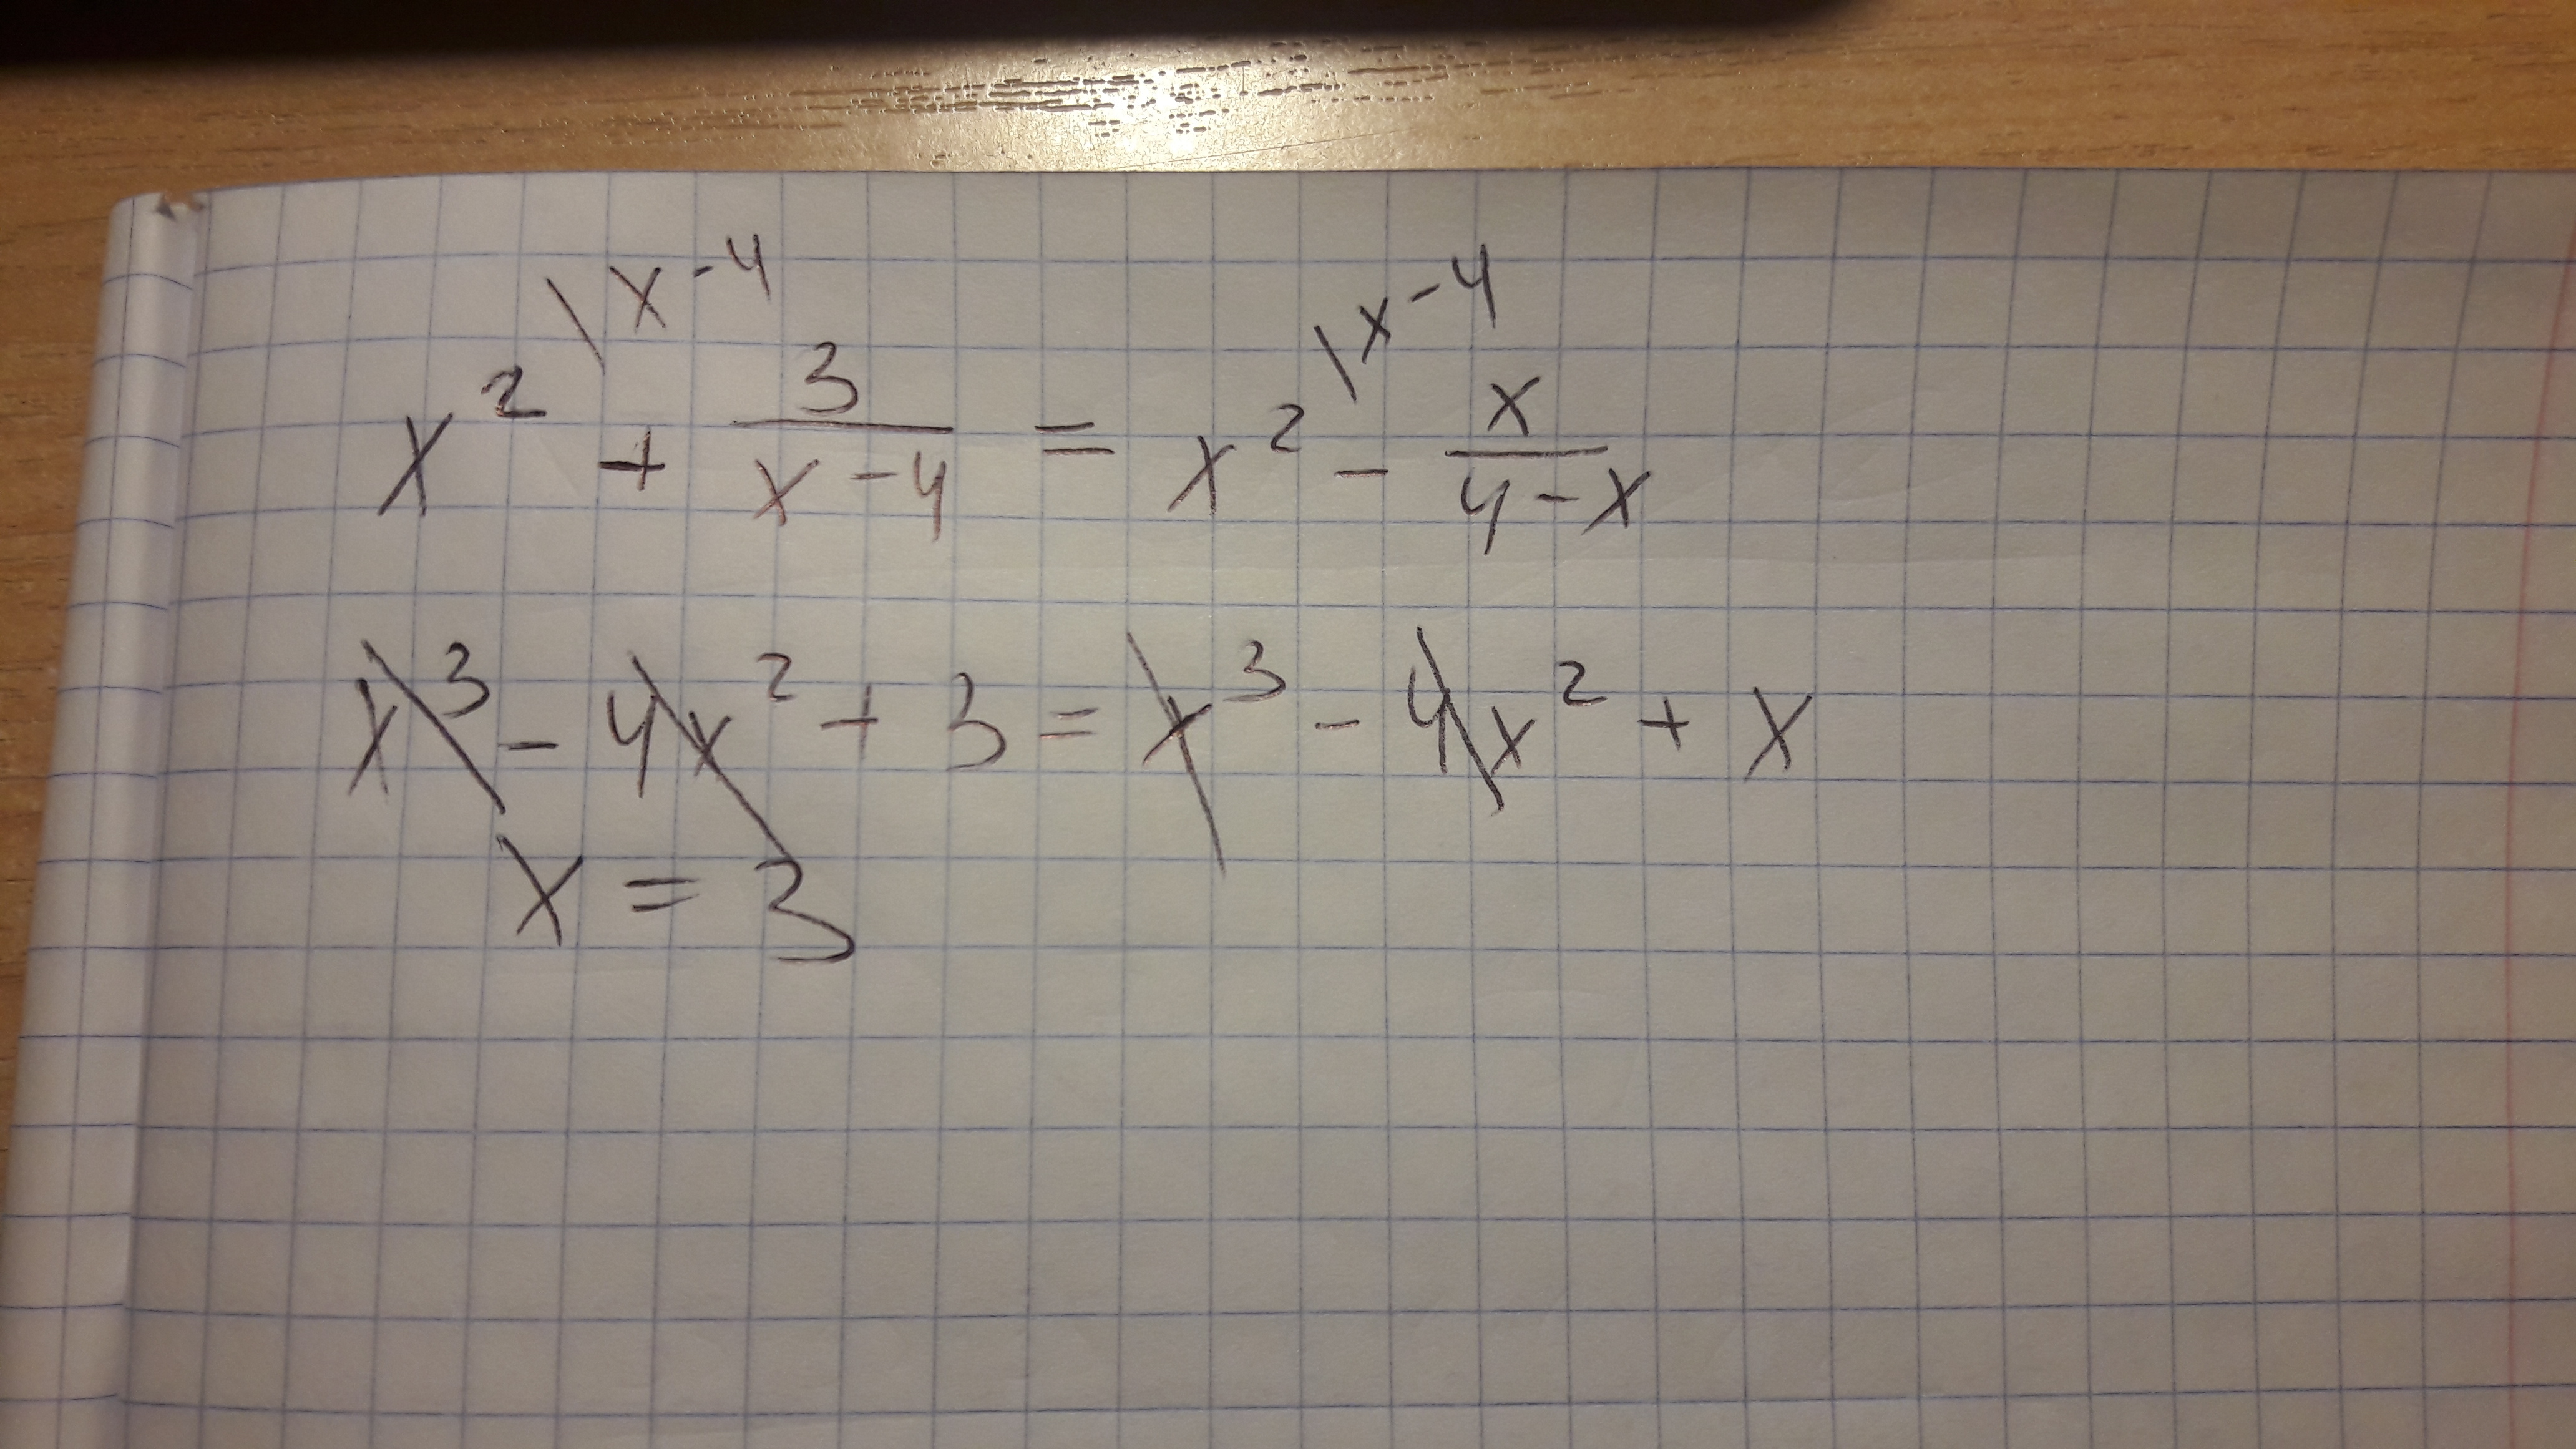 \x-4 \x-4
x² + 3/(x-4) = x² - x/(4-x)
x³ - 4x² + 3 = x³ - 4x² + x
x = 3